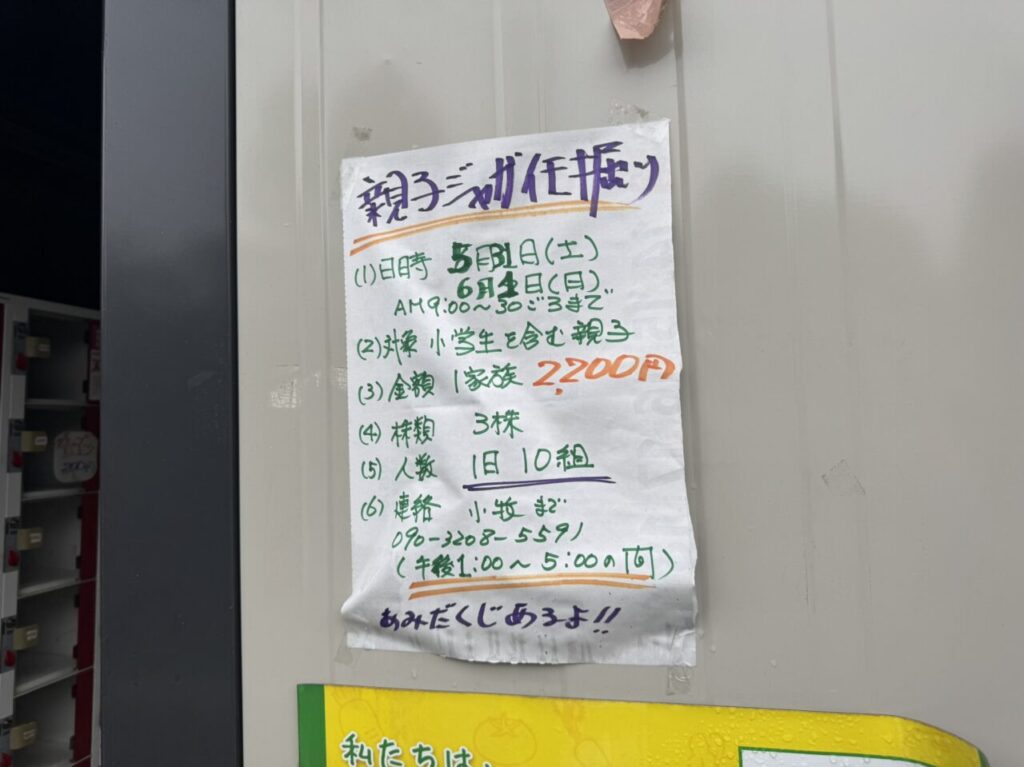 親子ジャガイモ掘り
(1)日時 5月31日(土)
6月1日(日)
AM9:00〜30ごろまで
(2)対象 小学生を含む親子
(3)金額 1家族 2,200円
(4)株類 3株
(5)人数 1日10組
(6)連絡 小牧まで
090-3208-5591
(午後1:00〜5:00の間)
あみだくじあるよ!!
私たちは、